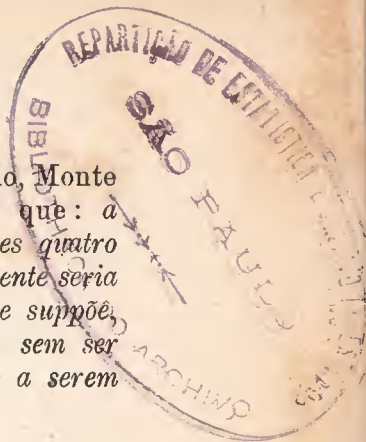 REPARTIÇÃO DE ESTATISTICA E
SÃO PAULO
BIBLIOTHECA DO ARCHIVO
do, Monte
que: a
es quatro
ente seria
e suppõe,
sem ser
a serem